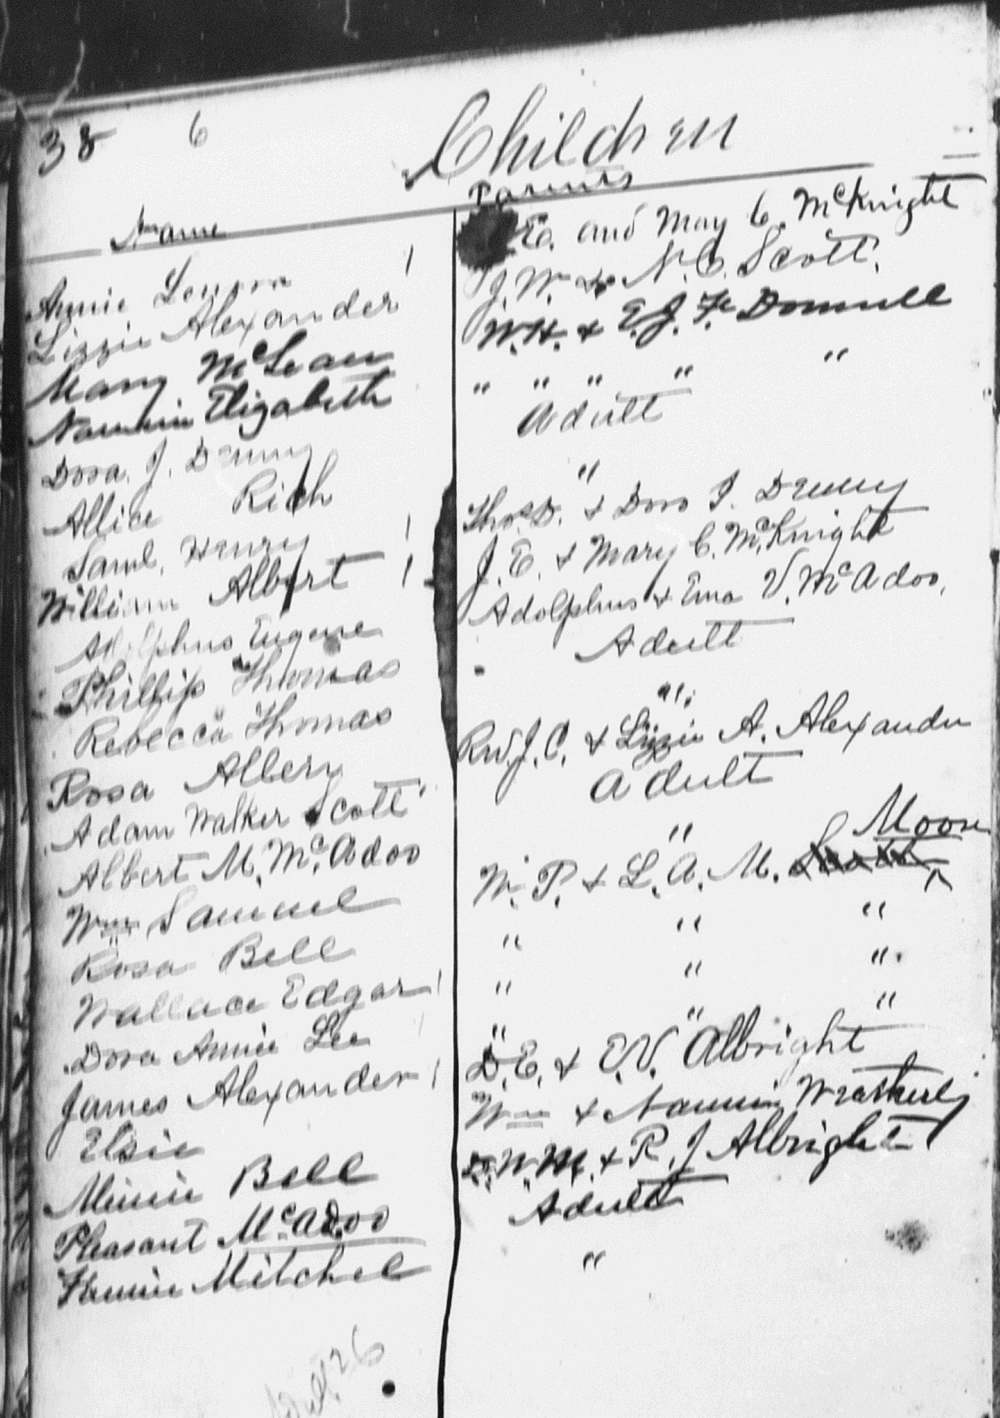 38 6 Children
Name Parents
Annie Lenora E. and May C. McKnight
Lizzie Alexander J. W. & N. C. Scott.
Mary McLean W. H. & E. J. F. Donnell
Nannie Elizabeth " " " " "
Dora. J. Denny Adult
Allice Rich "
Saml. Henry Thos. D. & Dora J. Denny
William Albert J. E. & Mary C. McKnight
Adolphus Eugene Adolphus & Ema V. McAdoo,
Phillip Thomas Adult
Rebecca Thomas "
Rosa Albery Rev. J. C. & Lizzie A. Alexander
Adam Walker Scott Adult
Albert M. McAdoo "
Wm Samuel W. P. & L. A. M. Moore
Rosa Bell " " "
Wallace Edgar " " "
Dora Annie Lee " " "
James Alexander D. E. & E. V. Albright
Elsie Wm & Nannie Weatherly
Minnie Bell W. M. & R. J Albright
Pleasant McAdoo Adult
Fannie Mitchel "
26